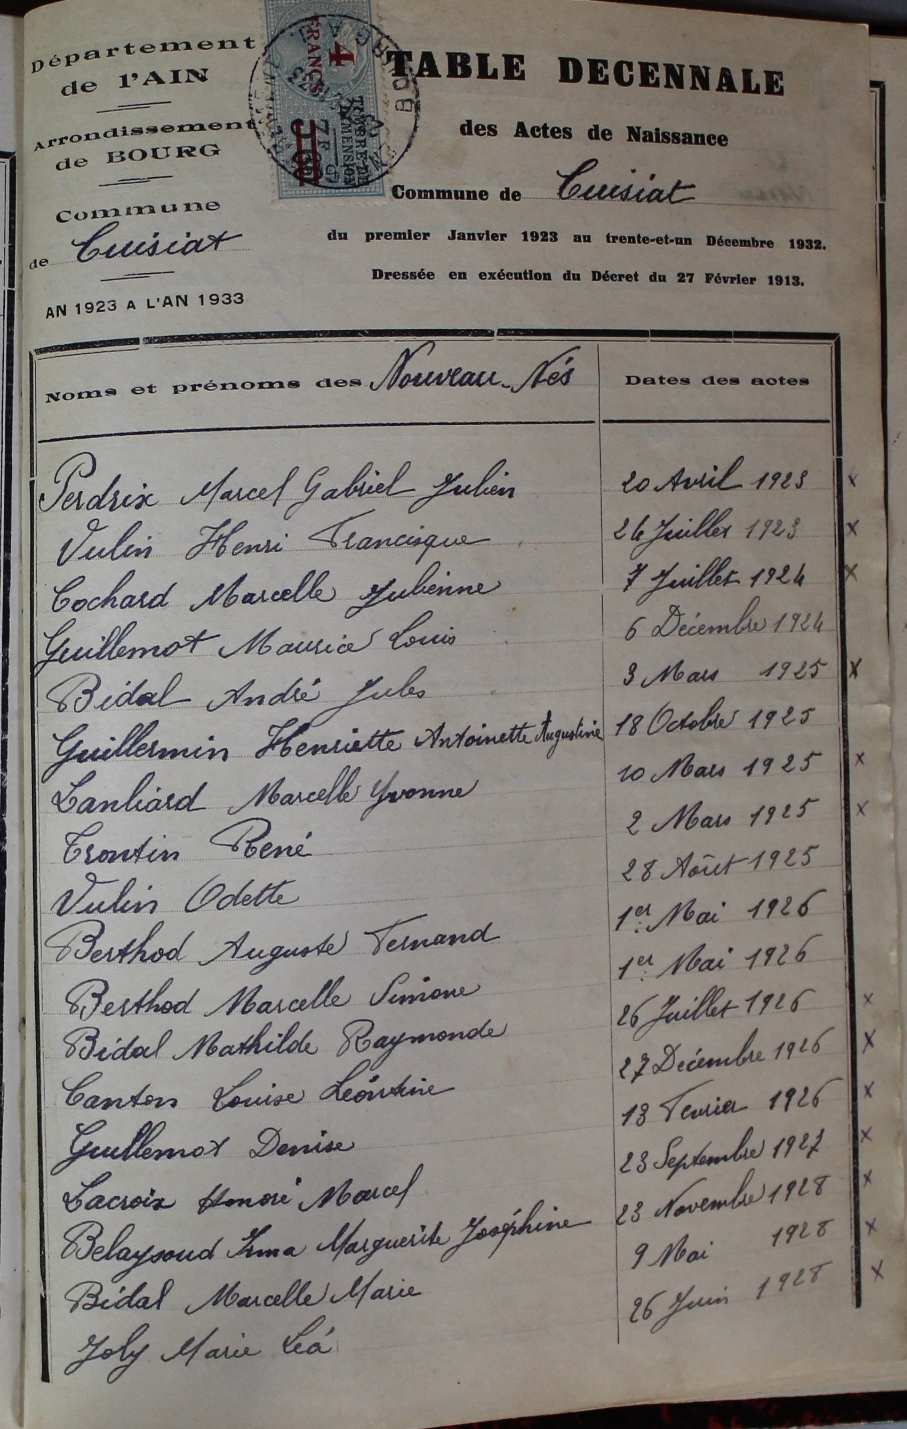 Département
de l'AIN
Arrondissement
de BOURG
Commune
de Cuisiat
AN 1923 A L'AN 1933
4
FRANCS
TABLE DECENNALE
des Actes de Naissance
Commune de Cuisiat
du premier Janvier 1923 au trente-et-un Décembre 1932.
Dressée en exécution du Décret du 27 Février 1913.
Noms et prénoms des Nouveau-Nés Dates des actes
Perdrix Marcel Gabriel Julien 20 Avril 1923 x
Vulin Henri Francisque 26 Juillet 1923 x
Cochard Marcelle Julienne 7 Juillet 1924 x
Guillemot Maurice Louis 6 Décembre 1924
Bidal André Jules 3 Mars 1925 x
Guillermin Henriette Antoinette Augustine 18 Octobre 1925
Lanliard Marcelle Yvonne 10 Mars 1925 x
Trontin René 2 Mars 1925 x
Vulin Odette 28 Août 1925
Berthod Auguste Fernand 1er Mai 1926
Berthod Marcelle Simone 1er Mai 1926
Bidal Mathilde Raymonde 26 Juillet 1926 x
Canton Louise Léontine 27 Décembre 1926 x
Guillemot Denise 13 Fevrier 1926 x
Lacroix Honoré Marcel 23 Septembre 1927 x
Belaysoud Irma Marguerite Joséphine 23 Novembre 1928 x
Bidal Marcelle Marie 9 Mai 1928 x
Joly Marie Léa 26 Juin 1928 x